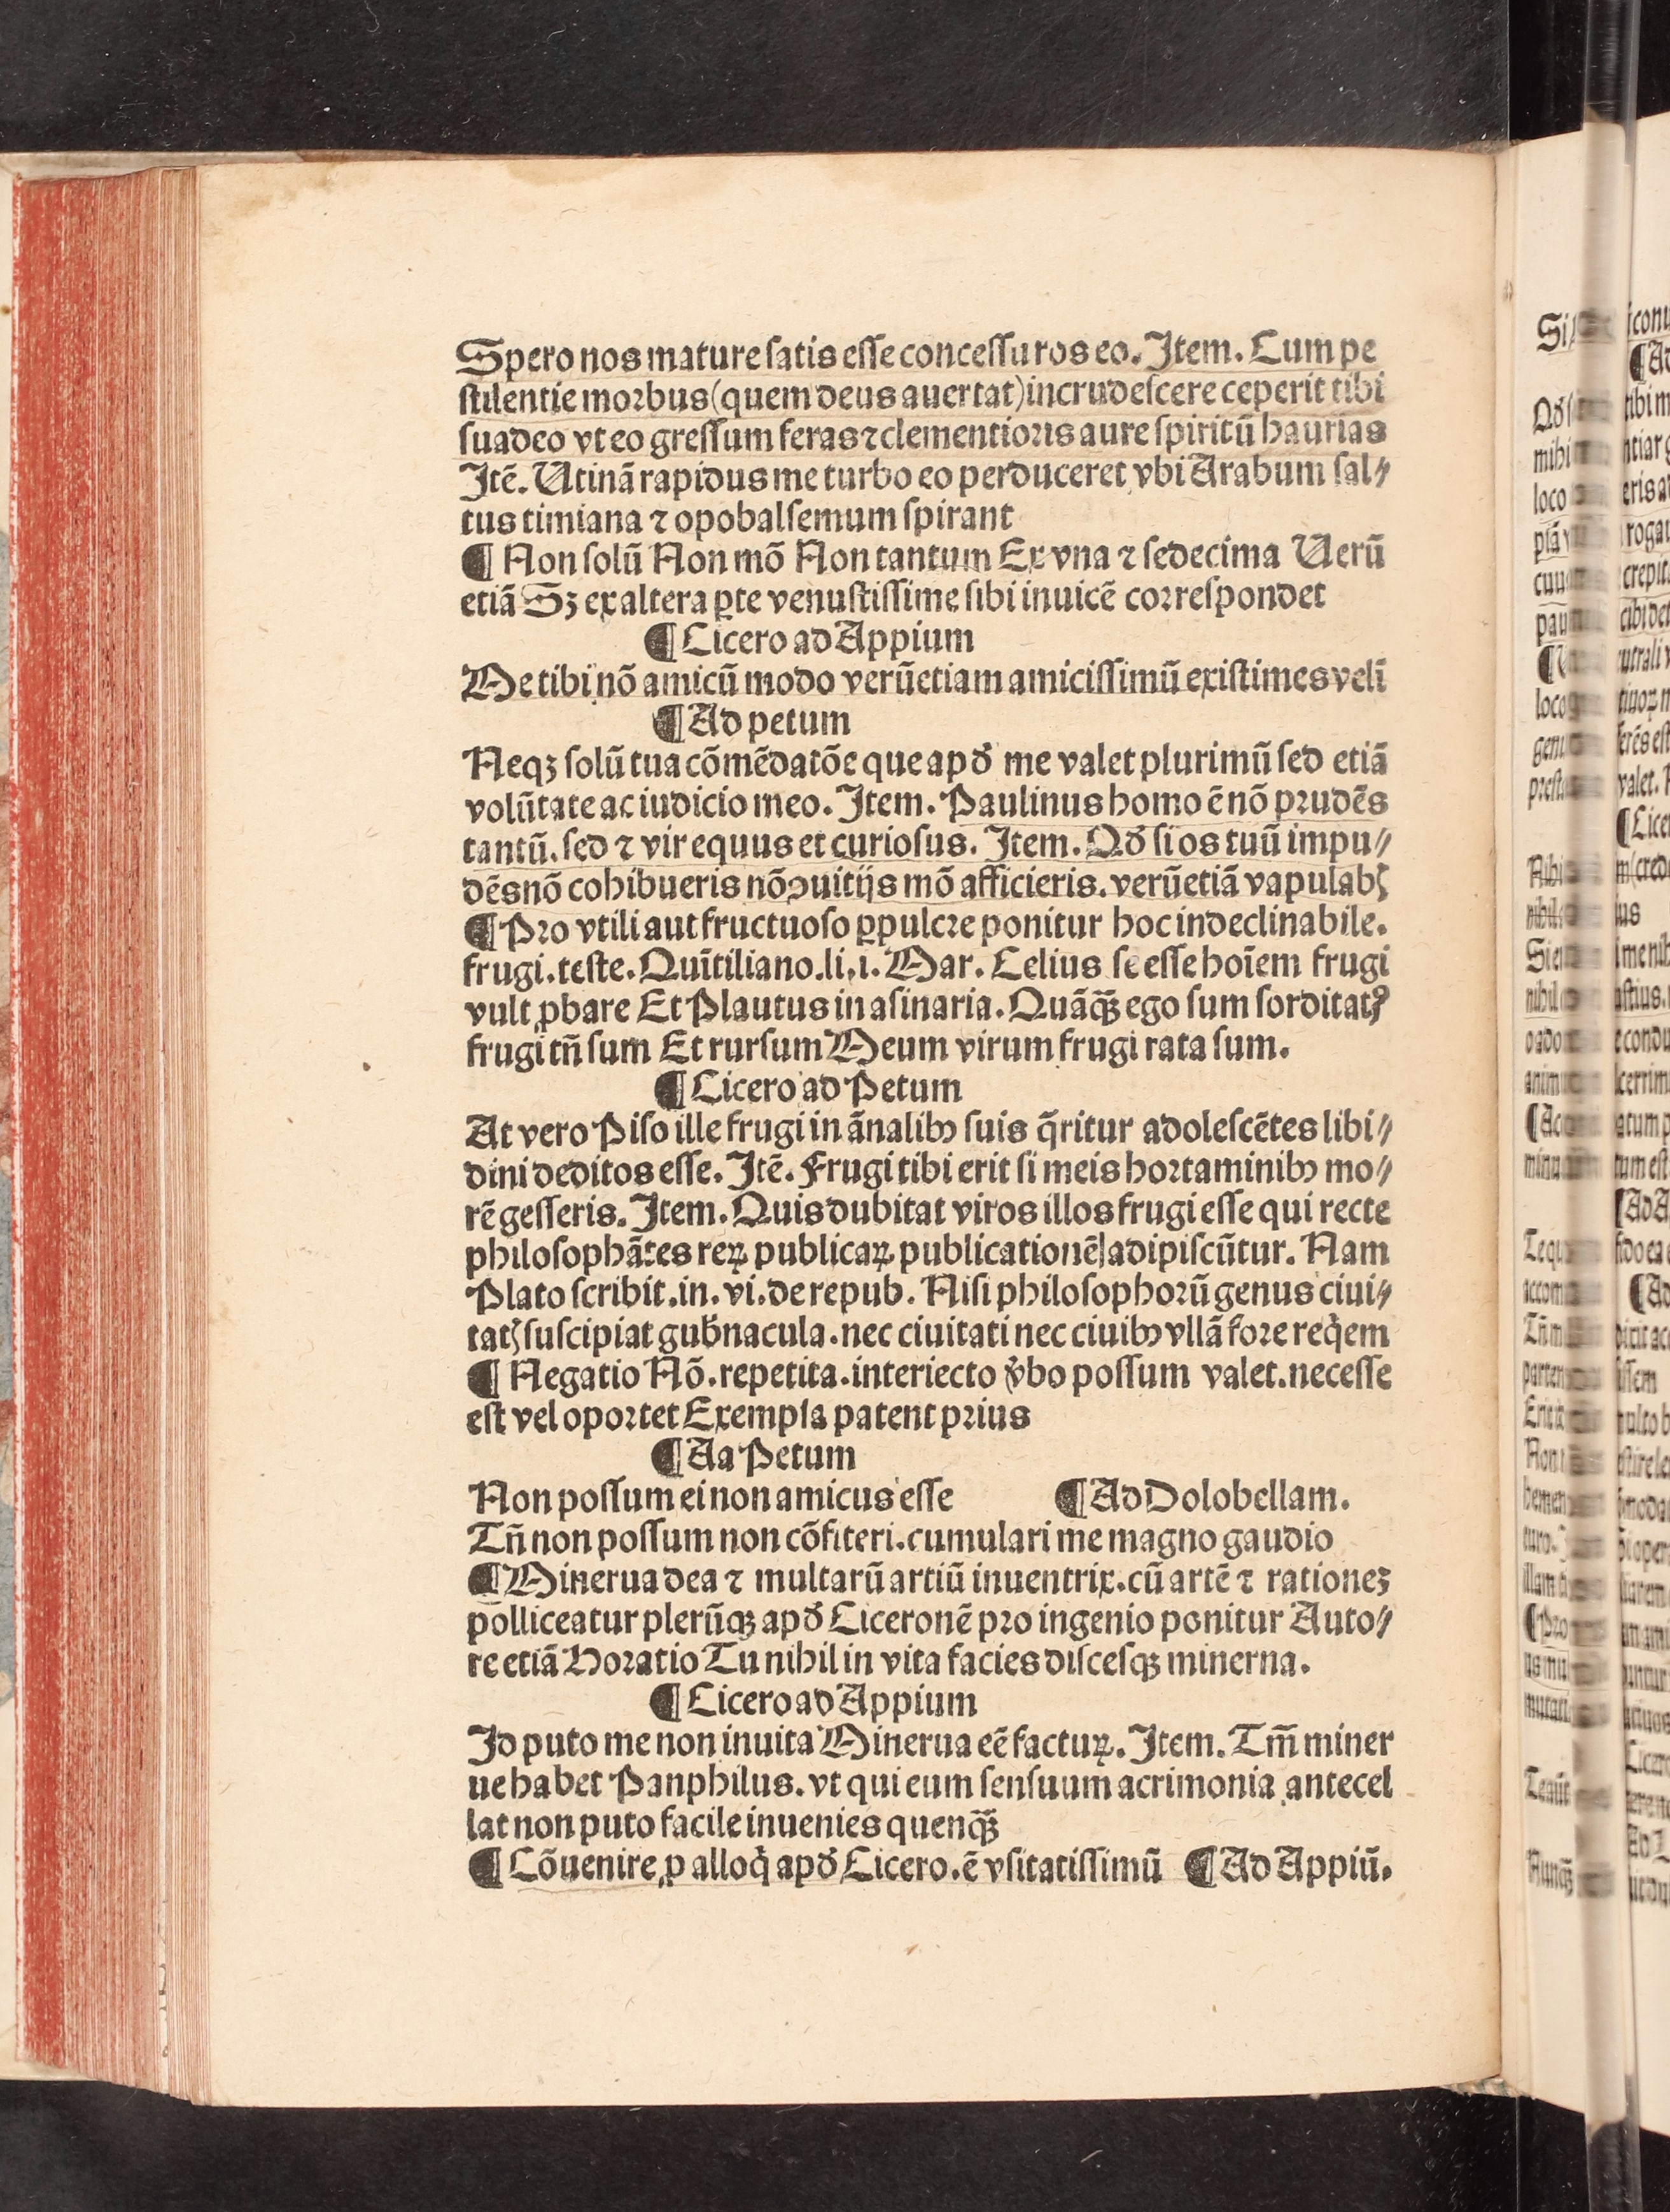 Spero nos mature ſatis eſſe conceſſuros eo. Item. Cum pe
ſtilentie morbus (quem deus auertat) incrudeſcere ceperit tibi
ſuadeo vt eo greſſum feras ⁊ clementioris aure ſpiritū haurias
Itē. Utinā rapidus me turbo eo perduceret vbi Arabum ſal⸗
tus timiana ⁊ opobalſemum ſpirant
¶ Non ſolū Non mō Non tantum Ex vna ⁊ ſedecima Uerū
etiā Sꝫ ex altera ꝑte venuſtiſſime ſibi inuicē correſpondet
¶ Cicero ad Appium
Me tibi nō amicū modo verū etiam amiciſſimū exiſtimes velī
¶ Ad petum
Neqꝫ ſolū tua cōmēdatōe que apd̓ me valet plurimū ſed etiā
volūtate ac iudicio meo. Item. Paulinus homo ē nō prudēs
tantū. ſed ⁊ vir equus et curioſus. Item. Qd̓ ſi os tuū impu⸗
dēs nō cohibueris nō ꝯuitijs mō afficieris. verū etiā vapulabꝭ
¶ Pro vtili aut fructuoſo ꝑpulcre ponitur hoc indeclinabile.
frugi. teſte. Quītiliano. li. i. Mar. Celius ſe eſſe hoīem frugi
vult ꝓbare Et Plautus in aſinaria. Quāqꝫ̄ ego ſum ſorditatꝰ
frugi tn̄ ſum Et rurſum Meum virum frugi rata ſum.
¶ Cicero ad Petum
At vero Piſo ille frugi in ānalibꝰ ſuis q̄ritur adoleſcētes libi⸗
dini deditos eſſe. Itē. Frugi tibi erit ſi meis hortaminibꝰ mo⸗
rē geſſeris. Item. Quis dubitat viros illos frugi eſſe qui recte
philoſophātes reꝝ publicaꝝ publicationē adipiſcūtur. Nam
Plato ſcribit. in. vi. de repub. Niſi philoſophorū genus ciui⸗
tatꝭ ſuſcipiat gub̓nacula. nec ciuitati nec ciuibꝰ vllā fore reqͥem
¶ Negatio Nō. repetita. interiecto v̓bo poſſum valet. neceſſe
eſt vel oportet Exempla patent prius
¶ Aa Petum
Non poſſum ei non amicus eſſe ¶ Ad Dolobellam.
Tn̄ non poſſum non cōfiteri. cumulari me magno gaudio
¶ Minerua dea ⁊ multarū artiū inuentrix. cū artē ⁊ rationeꝫ
polliceatur plerūqꝫ apd̓ Ciceronē pro ingenio ponitur Auto⸗
re etiā Horatio Tu nihil in vita facies diſceſqꝫ minerna.
¶ Cicero ad Appium
Id puto me non inuita Minerua eē factuꝝ. Item. Tm̄ miner
ue habet Panphilus. vt qui eum ſenſuum acrimonia antecel
lat non puto facile inuenies quenqꝫ̄
¶ Cōuenire ꝓ alloqͥ apd̓ Cicero. ē vſitatiſſimū ¶ Ad Appiū.